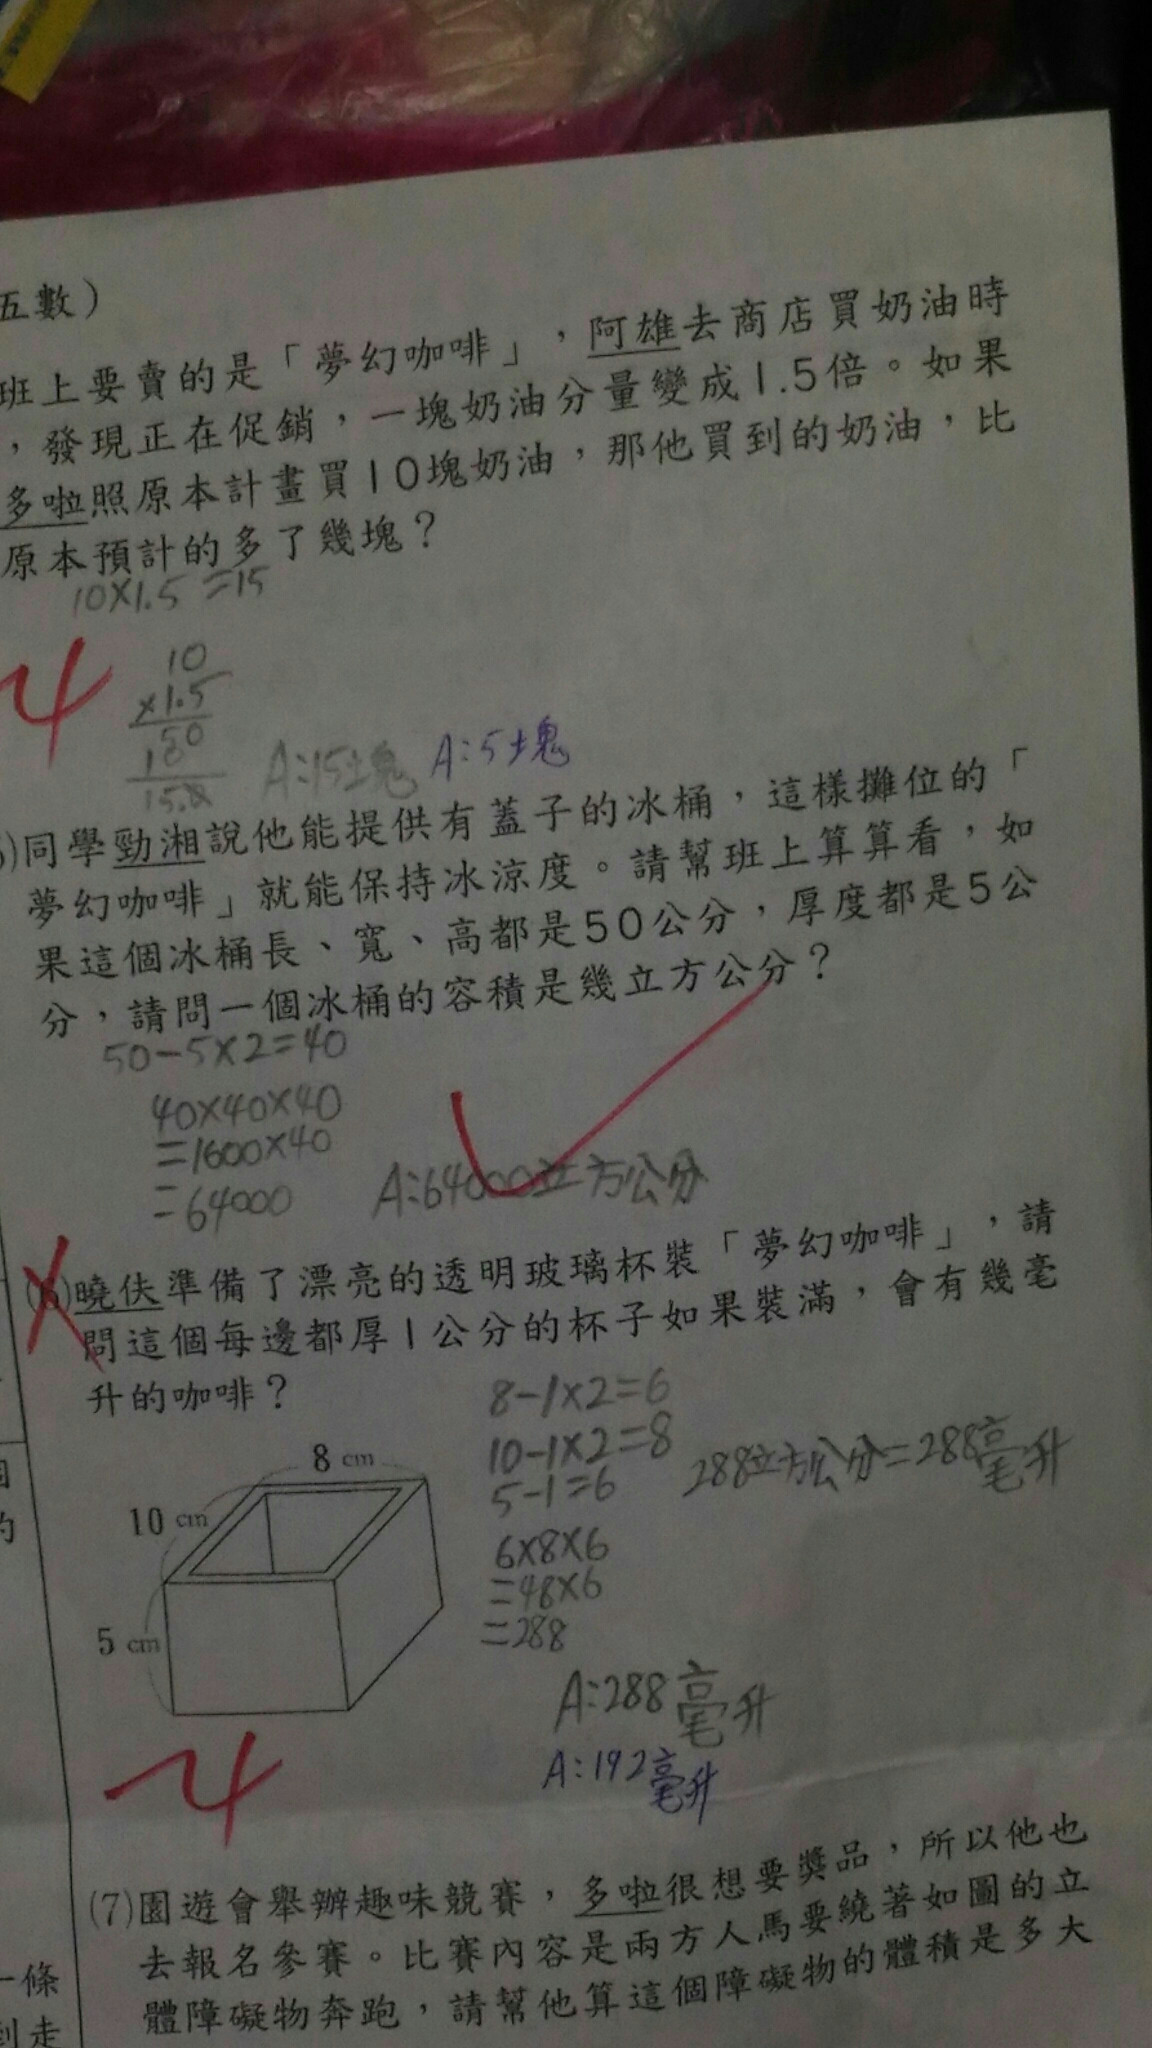 五數)
班上要賣的是「夢幻咖啡」，阿雄去商店買奶油時
，發現正在促銷，一塊奶油分量變成1.5倍。如果
多啦照原本計畫買10塊奶油，那他買到的奶油，比
原本預計的多了幾塊？
10×1.5=15
-4
10
×1.5
50
10
15.0
A:15塊 A:5塊
同學勁湘說他能提供有蓋子的冰桶，這樣攤位的「
夢幻咖啡」就能保持冰涼度。請幫班上算算看，如
果這個冰桶長、寬、高都是50公分，厚度都是5公
分，請問一個冰桶的容積是幾立方公分？
50-5×2=40
40×40×40
=1600×40
=64000
A:64000立方公分
(6)曉伕準備了漂亮的透明玻璃杯裝「夢幻咖啡」，請
問這個每邊都厚1公分的杯子如果裝滿，會有幾毫
升的咖啡？
8-1×2=6
10-1×2=8
5-1=6
288立方公分=288毫升
6×8×6
=48×6
=288
8 cm
10 cm
5 cm
A:288毫升
A:192毫升
-4
(7)園遊會舉辦趣味競賽，多啦很想要獎品，所以他也
去報名參賽。比賽內容是兩方人馬要繞著如圖的立
體障礙物奔跑，請幫他算這個障礙物的體積是多大
一條
到走